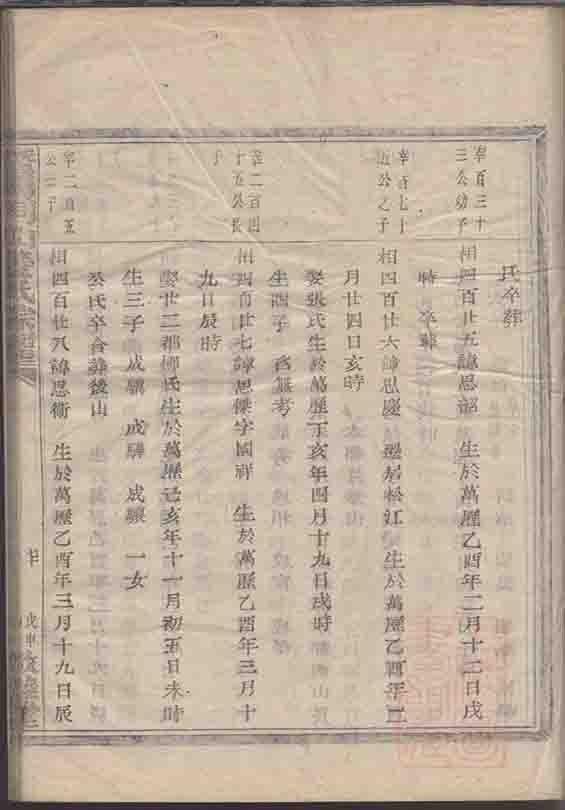 氏卒葬
宰百三十
三公幼子
相四百廿五諱思韶 生於萬歷乙酉年二月十二日戌
時 卒葬
宰百七十
公之子
相四百廿六諱思慶 遷居松江 生於萬歷乙酉年二
月廿四日亥時
娶張氏生於萬歷丁亥年四月十九日戌時
生四子 無考
宰二百四
十五公長
子
相四百廿七諱思傑字國祥 生於萬歷乙酉年三月十
九日辰時
娶廿二都 氏生於萬歷己亥年十一月初五日未時
生三子 成驥 成驊 成驤 一女
公氏卒合葬後山
宰二百五
公 子
相四百廿八諱思衛 生於萬歷乙酉年三月十九日辰
氏宗
戊申